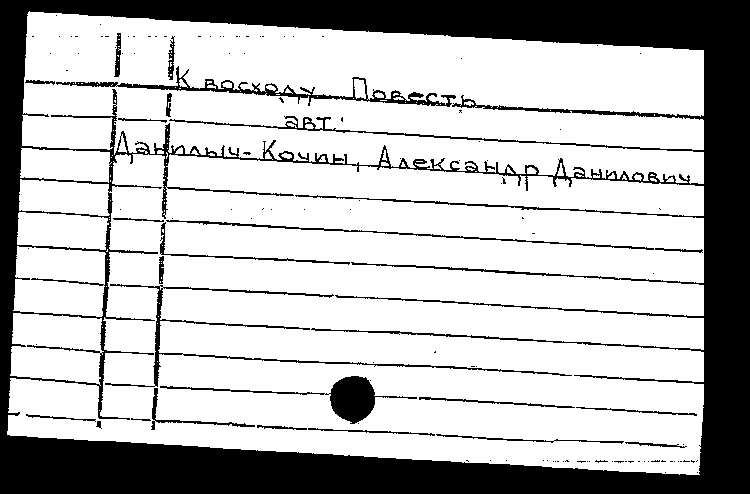 К восходу. Повесть
авт.:
Данилыч-Кочин, Александр Данилович